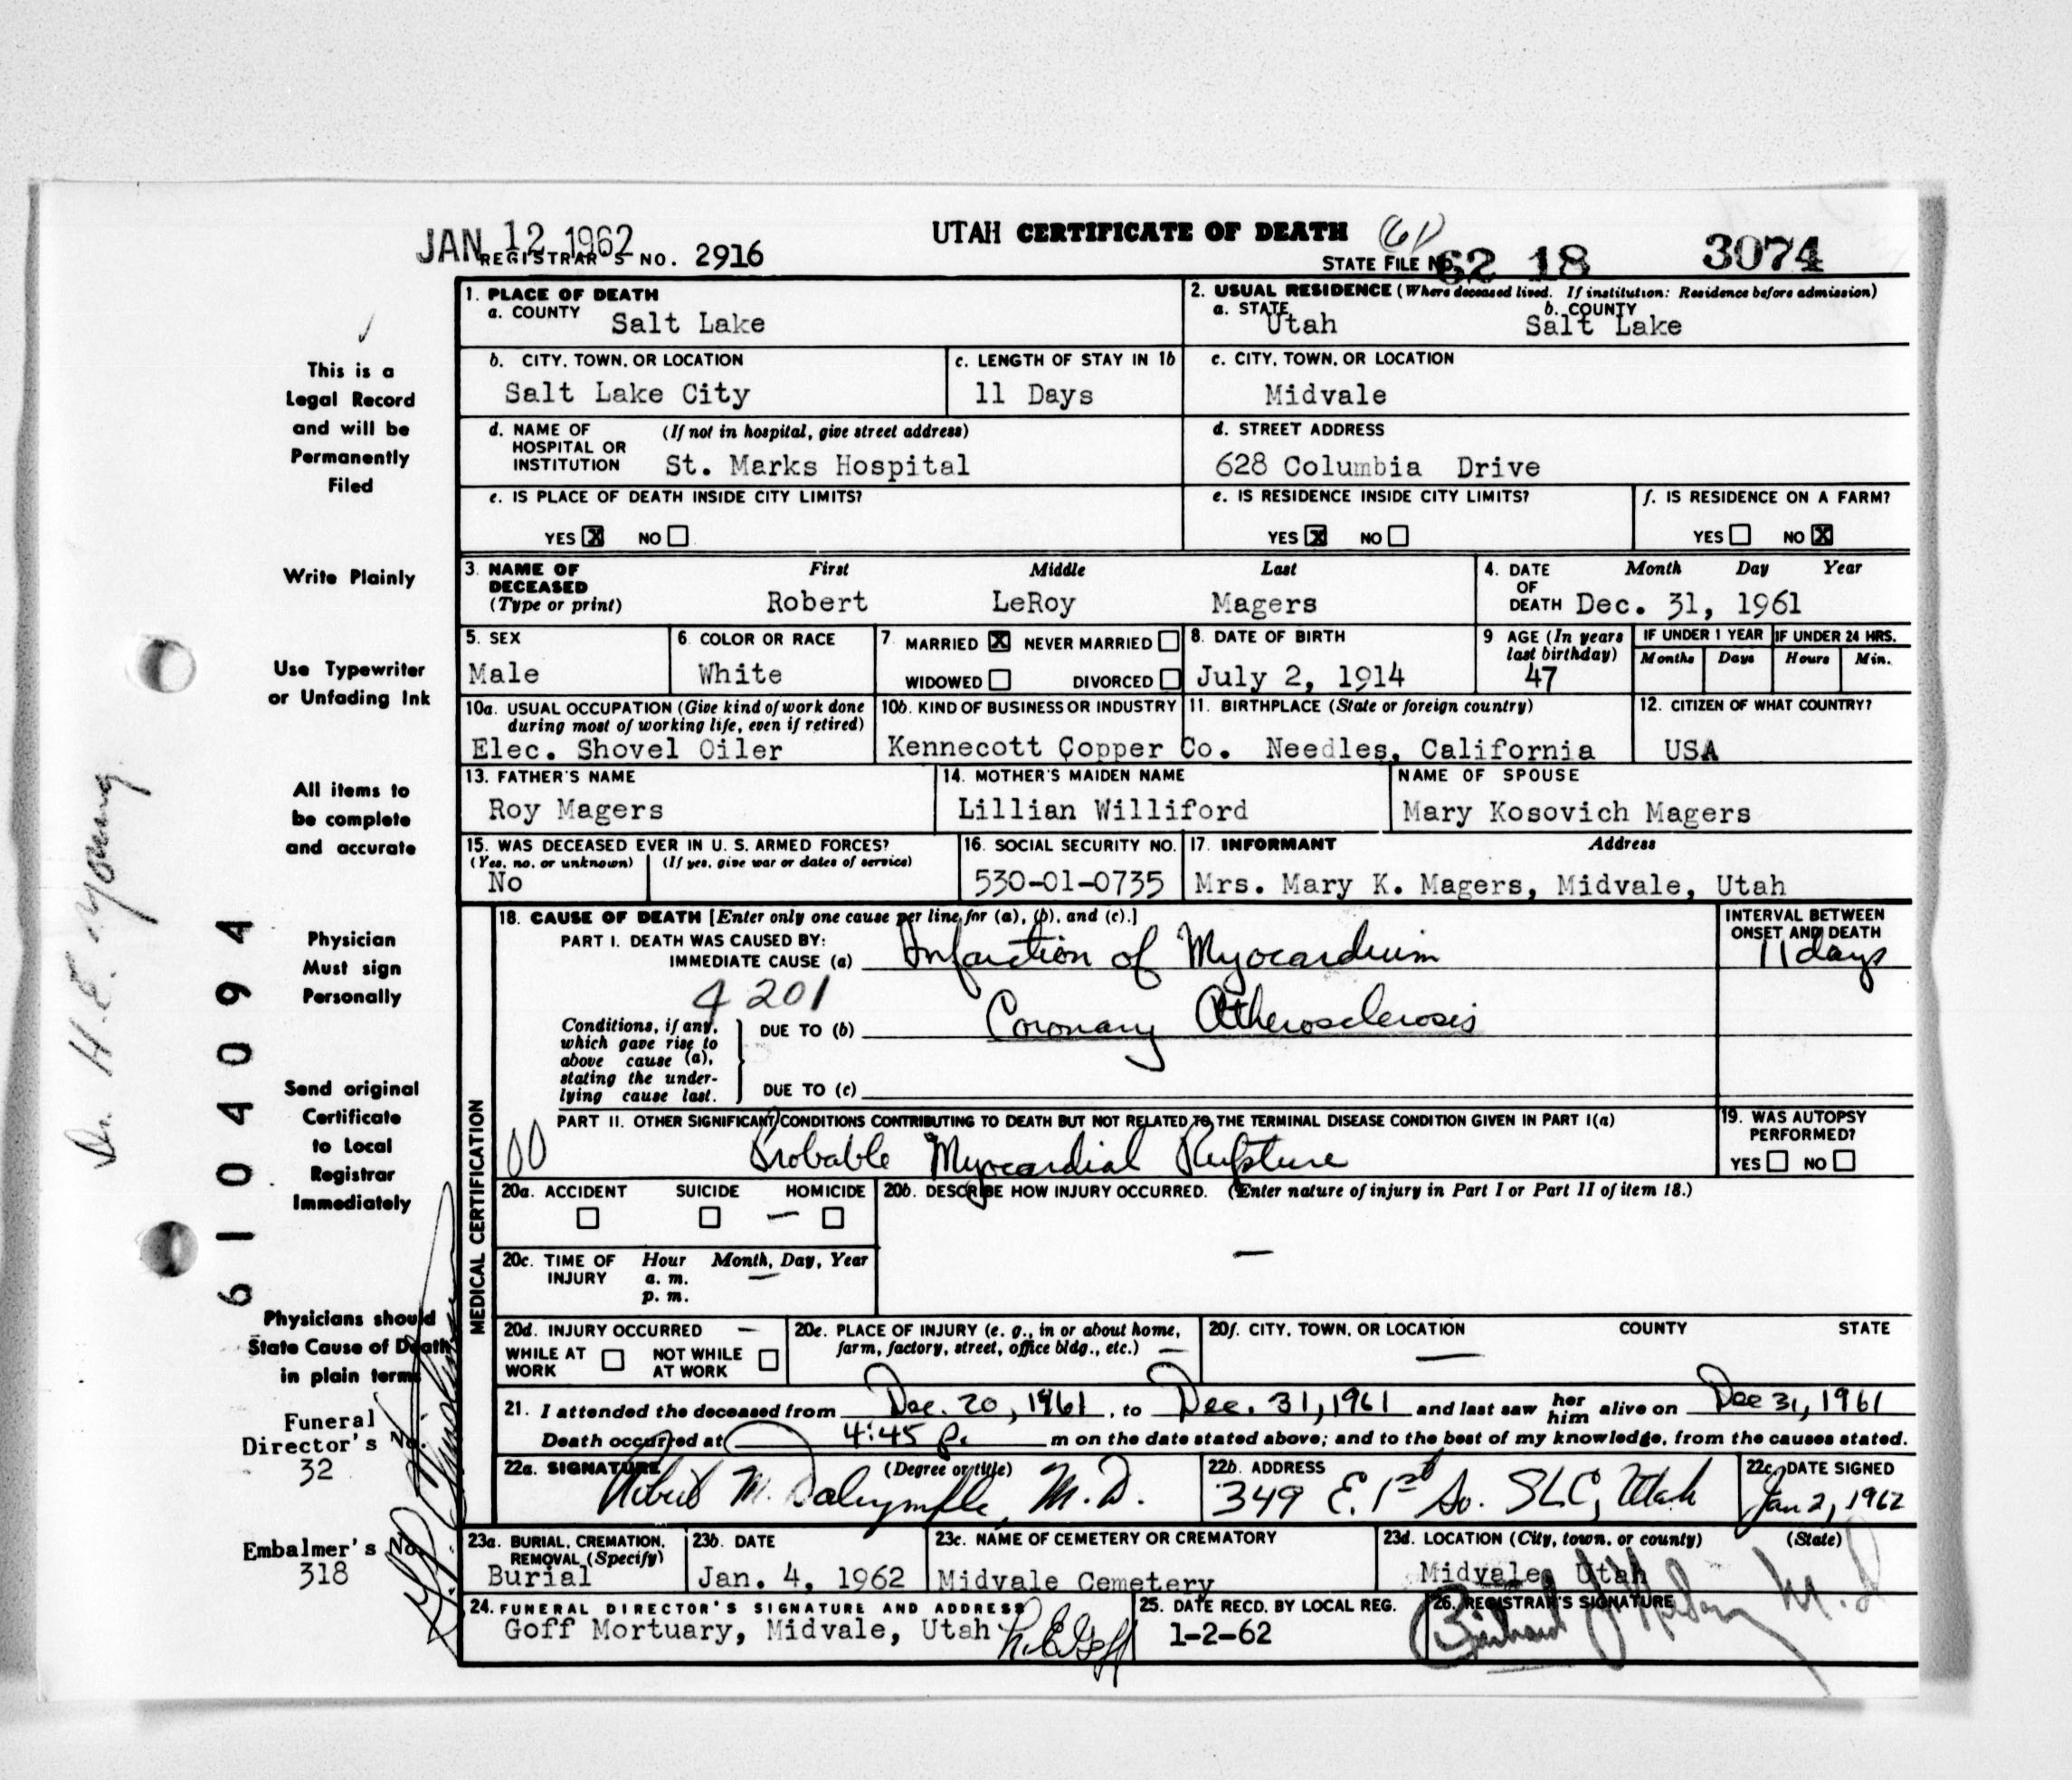 JAN 12 1962
UTAH CERTIFICATE OF DEATH (61)
REGISTRAR'S NO. 2916
STATE FILE NO. 62 18 3074
1. PLACE OF DEATH
a. COUNTY Salt Lake
2. USUAL RESIDENCE (Where deceased lived. If institution: Residence before admission)
a. STATE Utah b. COUNTY Salt Lake
b. CITY, TOWN, OR LOCATION
Salt Lake City
c. LENGTH OF STAY IN 1b
11 Days
c. CITY, TOWN, OR LOCATION
Midvale
d. NAME OF HOSPITAL OR INSTITUTION (If not in hospital, give street address)
St. Marks Hospital
d. STREET ADDRESS
628 Columbia Drive
e. IS PLACE OF DEATH INSIDE CITY LIMITS?
YES X NO
e. IS RESIDENCE INSIDE CITY LIMITS?
YES X NO
f. IS RESIDENCE ON A FARM?
YES NO X
3. NAME OF DECEASED (Type or print) First Middle Last
Robert LeRoy Magers
4. DATE OF DEATH Month Day Year
Dec. 31, 1961
5. SEX
Male
6. COLOR OR RACE
White
7. MARRIED X NEVER MARRIED
WIDOWED DIVORCED
8. DATE OF BIRTH
July 2, 1914
9 AGE (In years last birthday)
47
IF UNDER 1 YEAR
Months Days
IF UNDER 24 HRS.
Hours Min.
10a. USUAL OCCUPATION (Give kind of work done during most of working life, even if retired)
Elec. Shovel Oiler
10b. KIND OF BUSINESS OR INDUSTRY
Kennecott Copper Co.
11. BIRTHPLACE (State or foreign country)
Needles, California
12. CITIZEN OF WHAT COUNTRY?
USA
13. FATHER'S NAME
Roy Magers
14. MOTHER'S MAIDEN NAME
Lillian Williford
NAME OF SPOUSE
Mary Kosovich Magers
15. WAS DECEASED EVER IN U. S. ARMED FORCES?
(Yes, no, or unknown) (If yes, give war or dates of service)
No
16. SOCIAL SECURITY NO.
530-01-0735
17. INFORMANT Address
Mrs. Mary K. Magers, Midvale, Utah
MEDICAL CERTIFICATION
18. CAUSE OF DEATH [Enter only one cause per line for (a), (b), and (c).]
PART I. DEATH WAS CAUSED BY:
IMMEDIATE CAUSE (a) Infarction of Myocardium
INTERVAL BETWEEN ONSET AND DEATH
11 days
4201
Conditions, if any, which gave rise to above cause (a), stating the underlying cause last.
DUE TO (b) Coronary Atherosclerosis
DUE TO (c)
PART II. OTHER SIGNIFICANT CONDITIONS CONTRIBUTING TO DEATH BUT NOT RELATED TO THE TERMINAL DISEASE CONDITION GIVEN IN PART I(a)
00 Probable Myocardial Rupture
19. WAS AUTOPSY PERFORMED?
YES NO
20a. ACCIDENT SUICIDE HOMICIDE
20b. DESCRIBE HOW INJURY OCCURRED. (Enter nature of injury in Part I or Part II of item 18.)
20c. TIME OF INJURY Hour Month, Day, Year
a. m.
p. m.
20d. INJURY OCCURRED
WHILE AT WORK NOT WHILE AT WORK
20e. PLACE OF INJURY (e. g., in or about home, farm, factory, street, office bldg., etc.)
20f. CITY, TOWN, OR LOCATION COUNTY STATE
21. I attended the deceased from Dec. 20, 1961, to Dec. 31, 1961 and last saw her him alive on Dec 31, 1961
Death occurred at 4:45 p. m on the date stated above; and to the best of my knowledge, from the causes stated.
22a. SIGNATURE (Degree or title)
Robert M. Dalrymple, M.D.
22b. ADDRESS
349 E. 1st So. SLC, Utah
22c. DATE SIGNED
Jan 2, 1962
23a. BURIAL, CREMATION, REMOVAL (Specify)
Burial
23b. DATE
Jan. 4, 1962
23c. NAME OF CEMETERY OR CREMATORY
Midvale Cemetery
23d. LOCATION (City, town, or county) (State)
Midvale, Utah
24. FUNERAL DIRECTOR'S SIGNATURE AND ADDRESS
Goff Mortuary, Midvale, Utah
25. DATE RECD. BY LOCAL REG.
1-2-62
26. REGISTRAR'S SIGNATURE
M.D.
This is a
Legal Record
and will be
Permanently
Filed
Write Plainly
Use Typewriter
or Unfading Ink
All items to
be complete
and accurate
Physician
Must sign
Personally
Send original
Certificate
to Local
Registrar
Immediately
Physicians should
State Cause of Death
in plain terms
Funeral
Director's No.
32
Embalmer's No.
318
Dr. H.E. Young
6104094